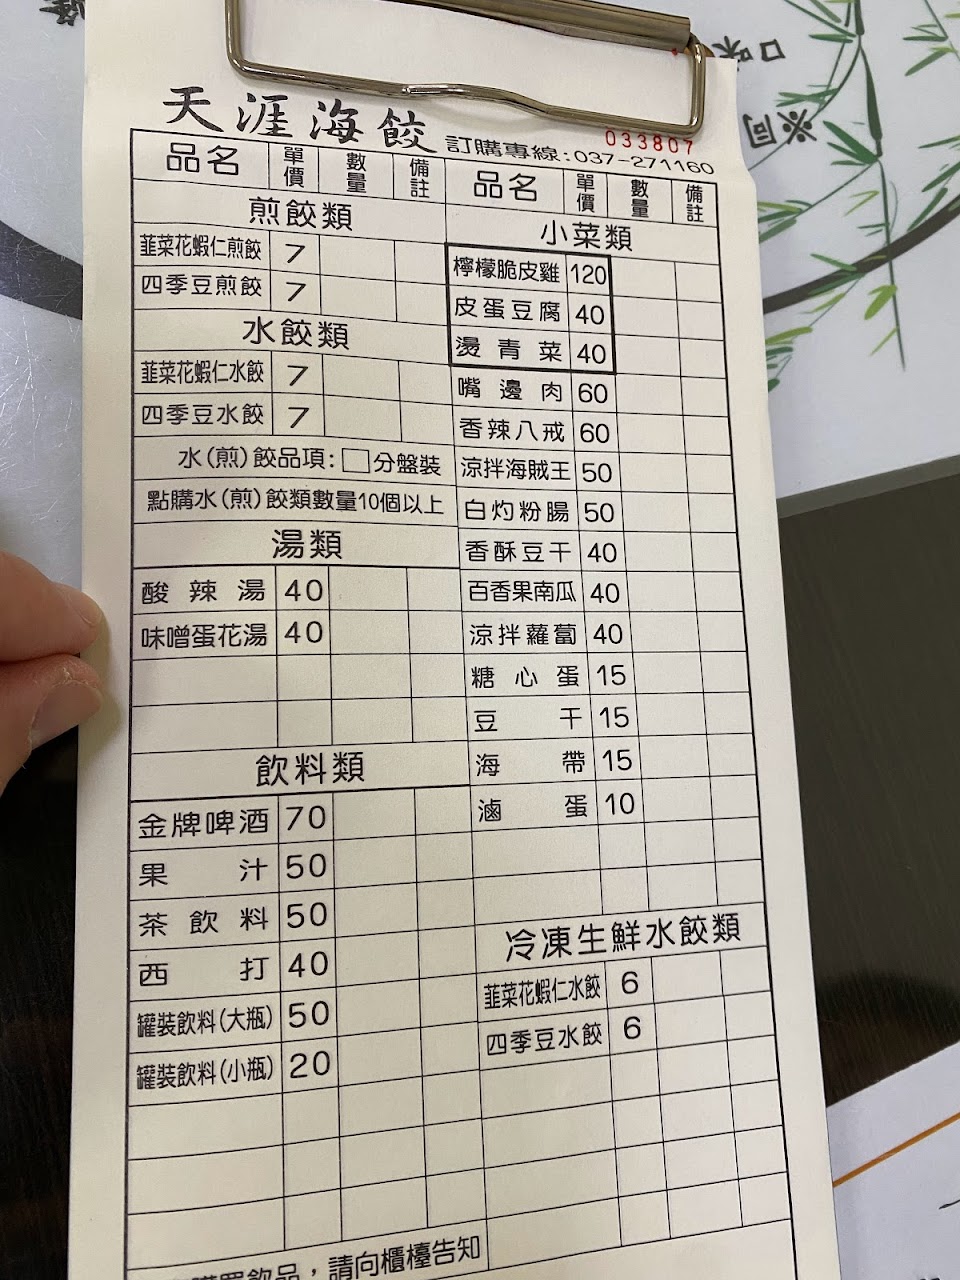 口味
※同
天涯海餃
訂購專線:037-271160
033807
品名 單價 數量 備註
煎餃類
韮菜花蝦仁煎餃 7
四季豆煎餃 7
水餃類
韮菜花蝦仁水餃 7
四季豆水餃 7
水(煎)餃品項:□分盤裝
點購水(煎)餃類數量10個以上
湯類
酸辣湯 40
味噌蛋花湯 40
飲料類
金牌啤酒 70
果汁 50
茶飲料 50
西打 40
罐裝飲料(大瓶) 50
罐裝飲料(小瓶) 20
品名 單價 數量 備註
小菜類
檸檬脆皮雞 120
皮蛋豆腐 40
燙青菜 40
嘴邊肉 60
香辣八戒 60
涼拌海賊王 50
白灼粉腸 50
香酥豆干 40
百香果南瓜 40
涼拌蘿蔔 40
糖心蛋 15
豆干 15
海帶 15
滷蛋 10
冷凍生鮮水餃類
韮菜花蝦仁水餃 6
四季豆水餃 6
購買飲品，請向櫃檯告知